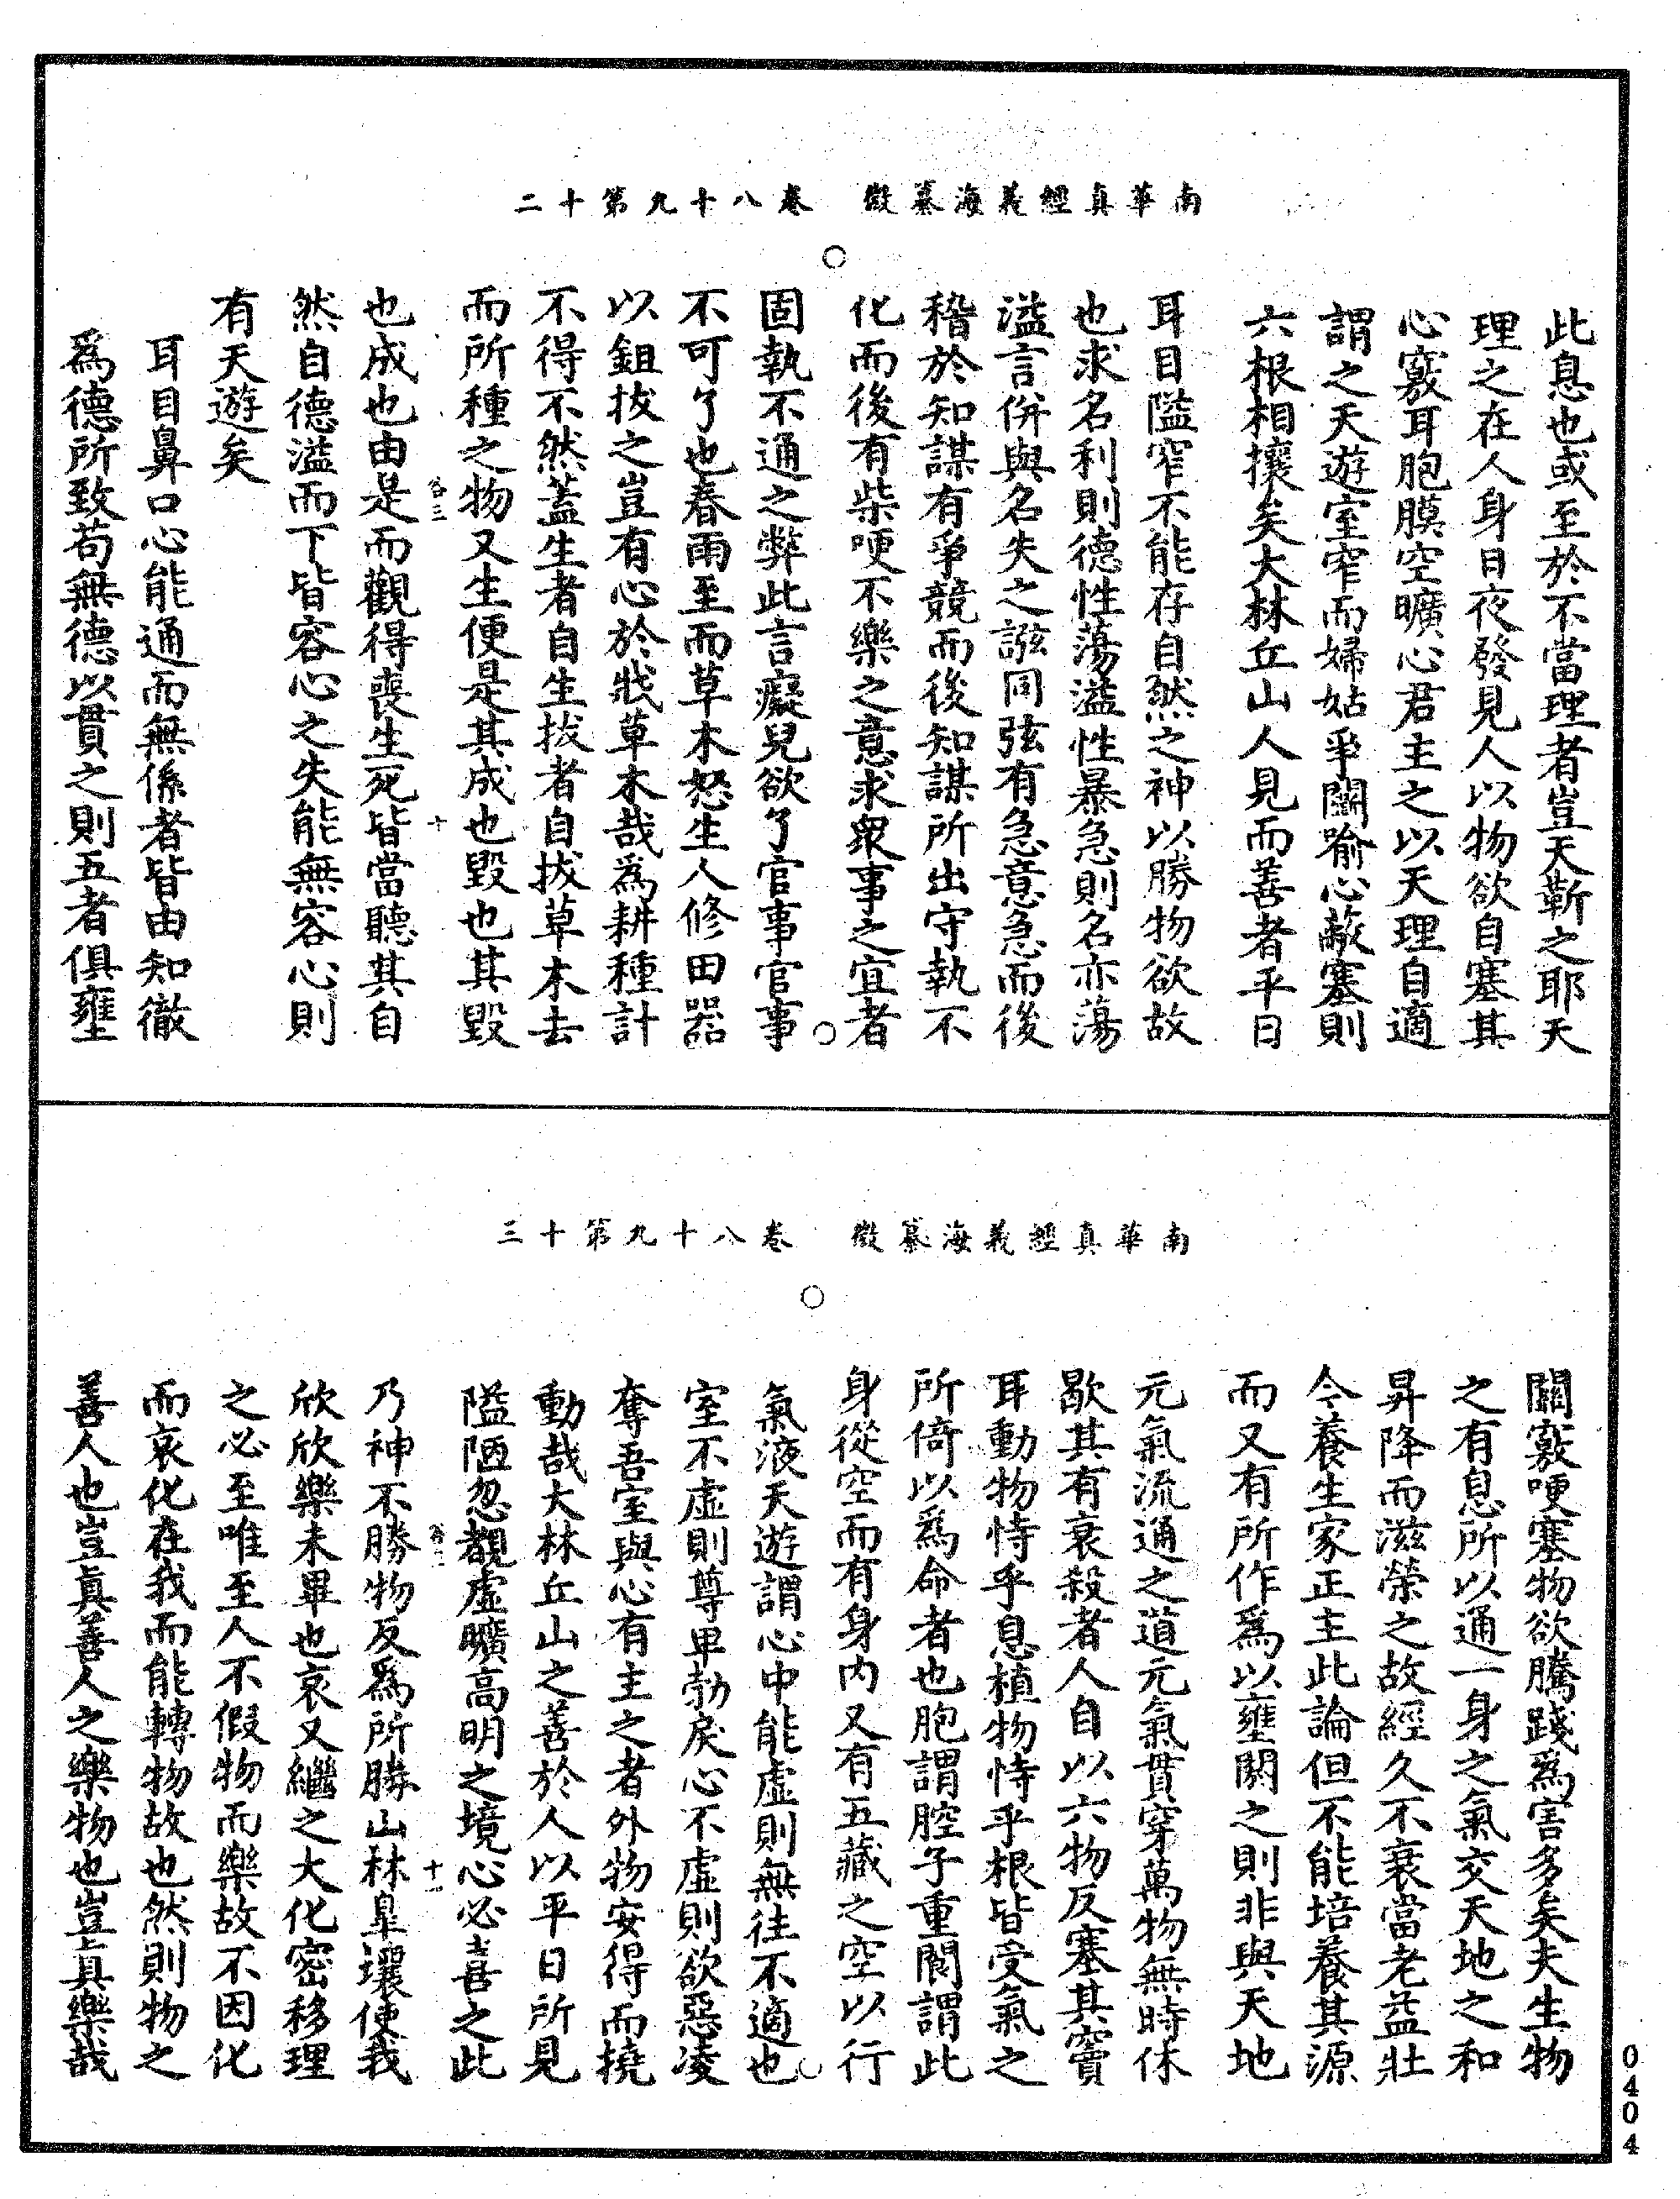 南華真經義海纂微　卷八十九第十二
此息也或至於不當理者豈天靳之耶天
理之在人身日夜發見人以物欲自塞其
心竅耳胞膜空曠心君主之以天理自適
謂之天遊室窄而婦姑爭鬬喻心蔽塞則
六根相攘矣大林丘山人見而善者平日
耳目隘窄不能存自然之神以勝物欲故
也求名利則德性蕩溢性暴急則名亦蕩
溢言併與名失之誸同弦有急意急而後
稽於知謀有爭競而後知謀所出守執不
化而後有柴哽不樂之意求衆事之宜者
固執不通之弊此言癡兒欲了官事官事
不可了也春雨至而草木怒生人修田器
以鉏拔之豈有心於戕草木哉爲耕種計
不得不然蓋生者自生拔者自拔草木去
而所種之物又生便是其成也毀也其毀
也成也由是而觀得喪生死皆當聽其自
然自德溢而下皆容心之失能無容心則
有天遊矣
耳目鼻口心能通而無係者皆由知徹
爲德所致苟無德以貫之則五者俱壅
南華真經義海纂微　卷八十九第十三
闗竅哽塞物欲騰踐爲害多矣夫生物
之有息所以通一身之氣交天地之和
昇降而滋榮之故經久不衰當老益壯
今養生家正主此論但不能培養其源
而又有所作爲以壅閼之則非與天地
元氣流通之道元氣貫穿萬物無時休
歇其有衰殺者人自以六物反塞其竇
耳動物恃乎息植物恃乎根皆受氣之
所倚以爲命者也胞謂腔子重閬謂此
身從空而有身内又有五藏之空以行
氣液天遊謂心中能虚則無往不適也
室不虚則尊卑勃戾心不虚則欲惡凌
奪吾室與心有主之者外物安得而撓
動哉大林丘山之善於人以平日所見
隘陋忽覩虚曠高明之境心必喜之此
乃神不勝物反爲所勝山林臯壤使我
欣欣樂未畢也哀又繼之大化密移理
之必至唯至人不假物而樂故不因化
而哀化在我而能轉物故也然則物之
善人也豈真善人之樂物也豈真樂哉
0404